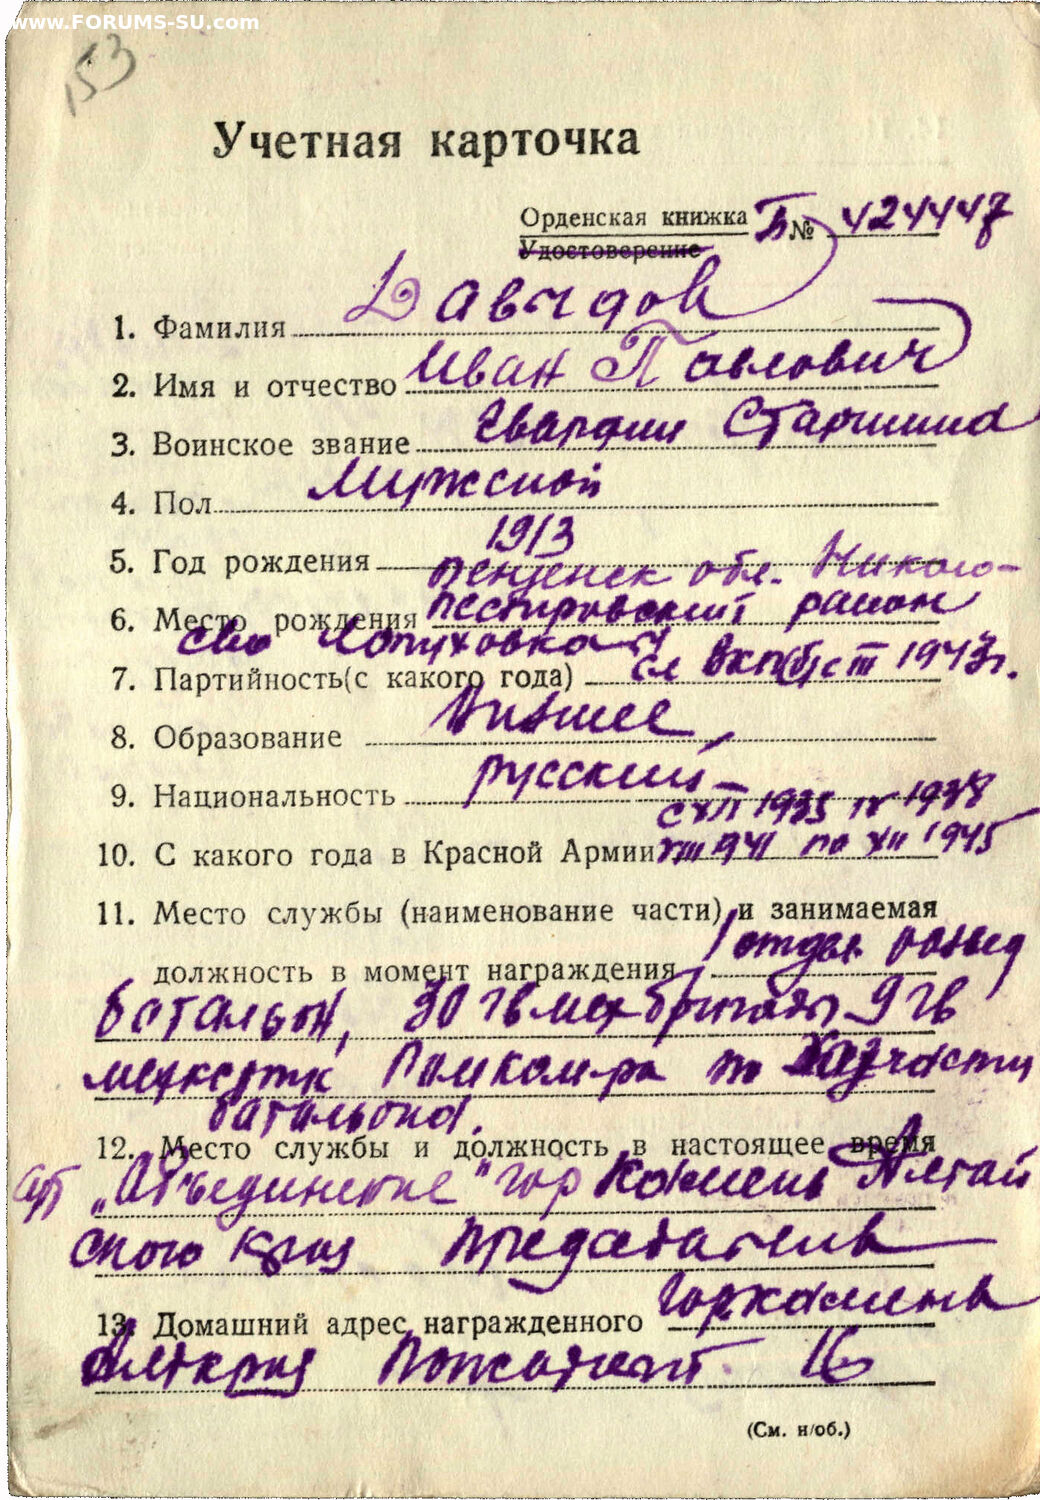 www.FORUMS-SU.com
153
Учетная карточка
Орденская книжка Б № 424447
Удостоверение
1. Фамилия Давыдов
2. Имя и отчество Иван Павлович
3. Воинское звание Гвардии Старшина
4. Пол Мужской
5. Год рождения 1913
Пензенск обл. Николо-
6. Место рождения пестровский район
село Лопуховка
7. Партийность (с какого года) чл ВКП(б) с III 1943 г.
8. Образование Низшее
9. Национальность русский
с XII 1935 IV 1938
10. С какого года в Красной Армии VIII 941 по XII 1945
11. Место службы (наименование части) и занимаемая
должность в момент награждения отдел развед
батальон, 30 гв мех бригады 9 гв
мех Помком-ра по хозчасти
батальона.
12. Место службы и должность в настоящее время
арт „Объединение" гор Камень Алтай
ского края Председатель
13. Домашний адрес награжденного гор Камень
Алткрая 16
(См. н/об.)